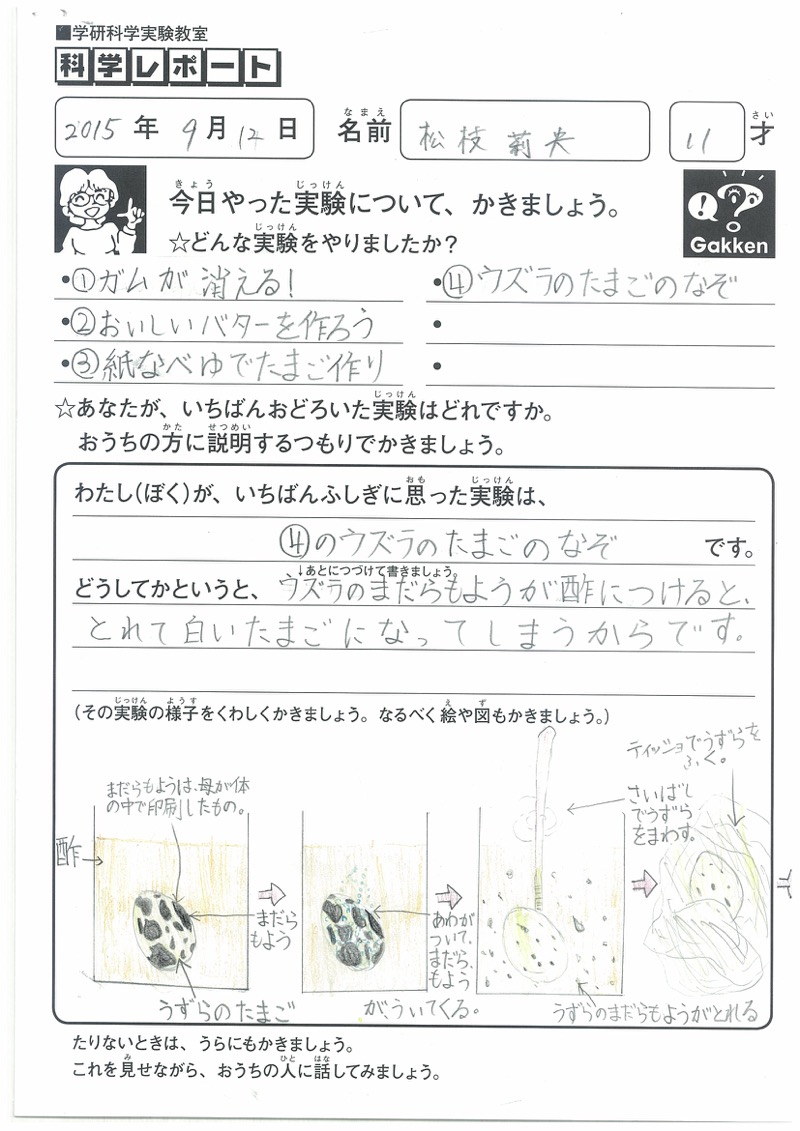 ■学研科学実験教室
科学レポート
2015年 9月12日 名前 松枝 莉央 11才
なまえ さい
きょう じっけん
今日やった実験について、かきましょう。
じっけん
☆どんな実験をやりましたか？
Gakken
•①ガムが消える！
•④ウズラのたまごのなぞ
•②おいしいバターを作ろう
•
•③紙なべゆでたまご作り
•
じっけん
☆あなたが、いちばんおどろいた実験はどれですか。
かた せつめい
おうちの方に説明するつもりでかきましょう。
おも じっけん
わたし(ぼく)が、いちばんふしぎに思った実験は、
④のウズラのたまごのなぞ です。
↓あとにつづけて書きましょう。
どうしてかというと、ウズラのまだらもようが酢につけると、
とれて白いたまごになってしまうからです。
じっけん ようす え ず
(その実験の様子をくわしくかきましょう。なるべく絵や図もかきましょう。)
まだらもようは、母が体
の中で印刷したもの。
酢→
まだら
もよう
うずらのたまご
あわが
ついて、
まだら
もよう
が、ういてくる。
さいばし
でうずら
をまわす。
うずらのまだらもようがとれる
ティッシュでうずらを
ふく。
たりないときは、うらにもかきましょう。
み ひと はな
これを見せながら、おうちの人に話してみましょう。